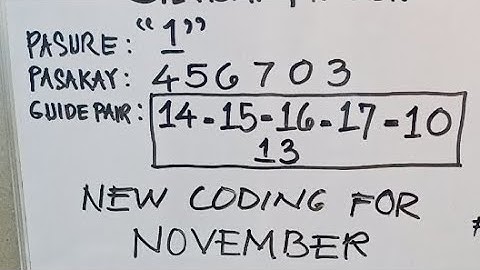 PASURE: "1"
PASAKAY: 4 5 6 7 0 3
GUIDE PAIR: 14-15-16-17-10
13
NEW CODING FOR
NOVEMBER